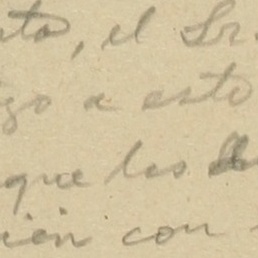 sto, el Sr.
go a esto
que les
ién con